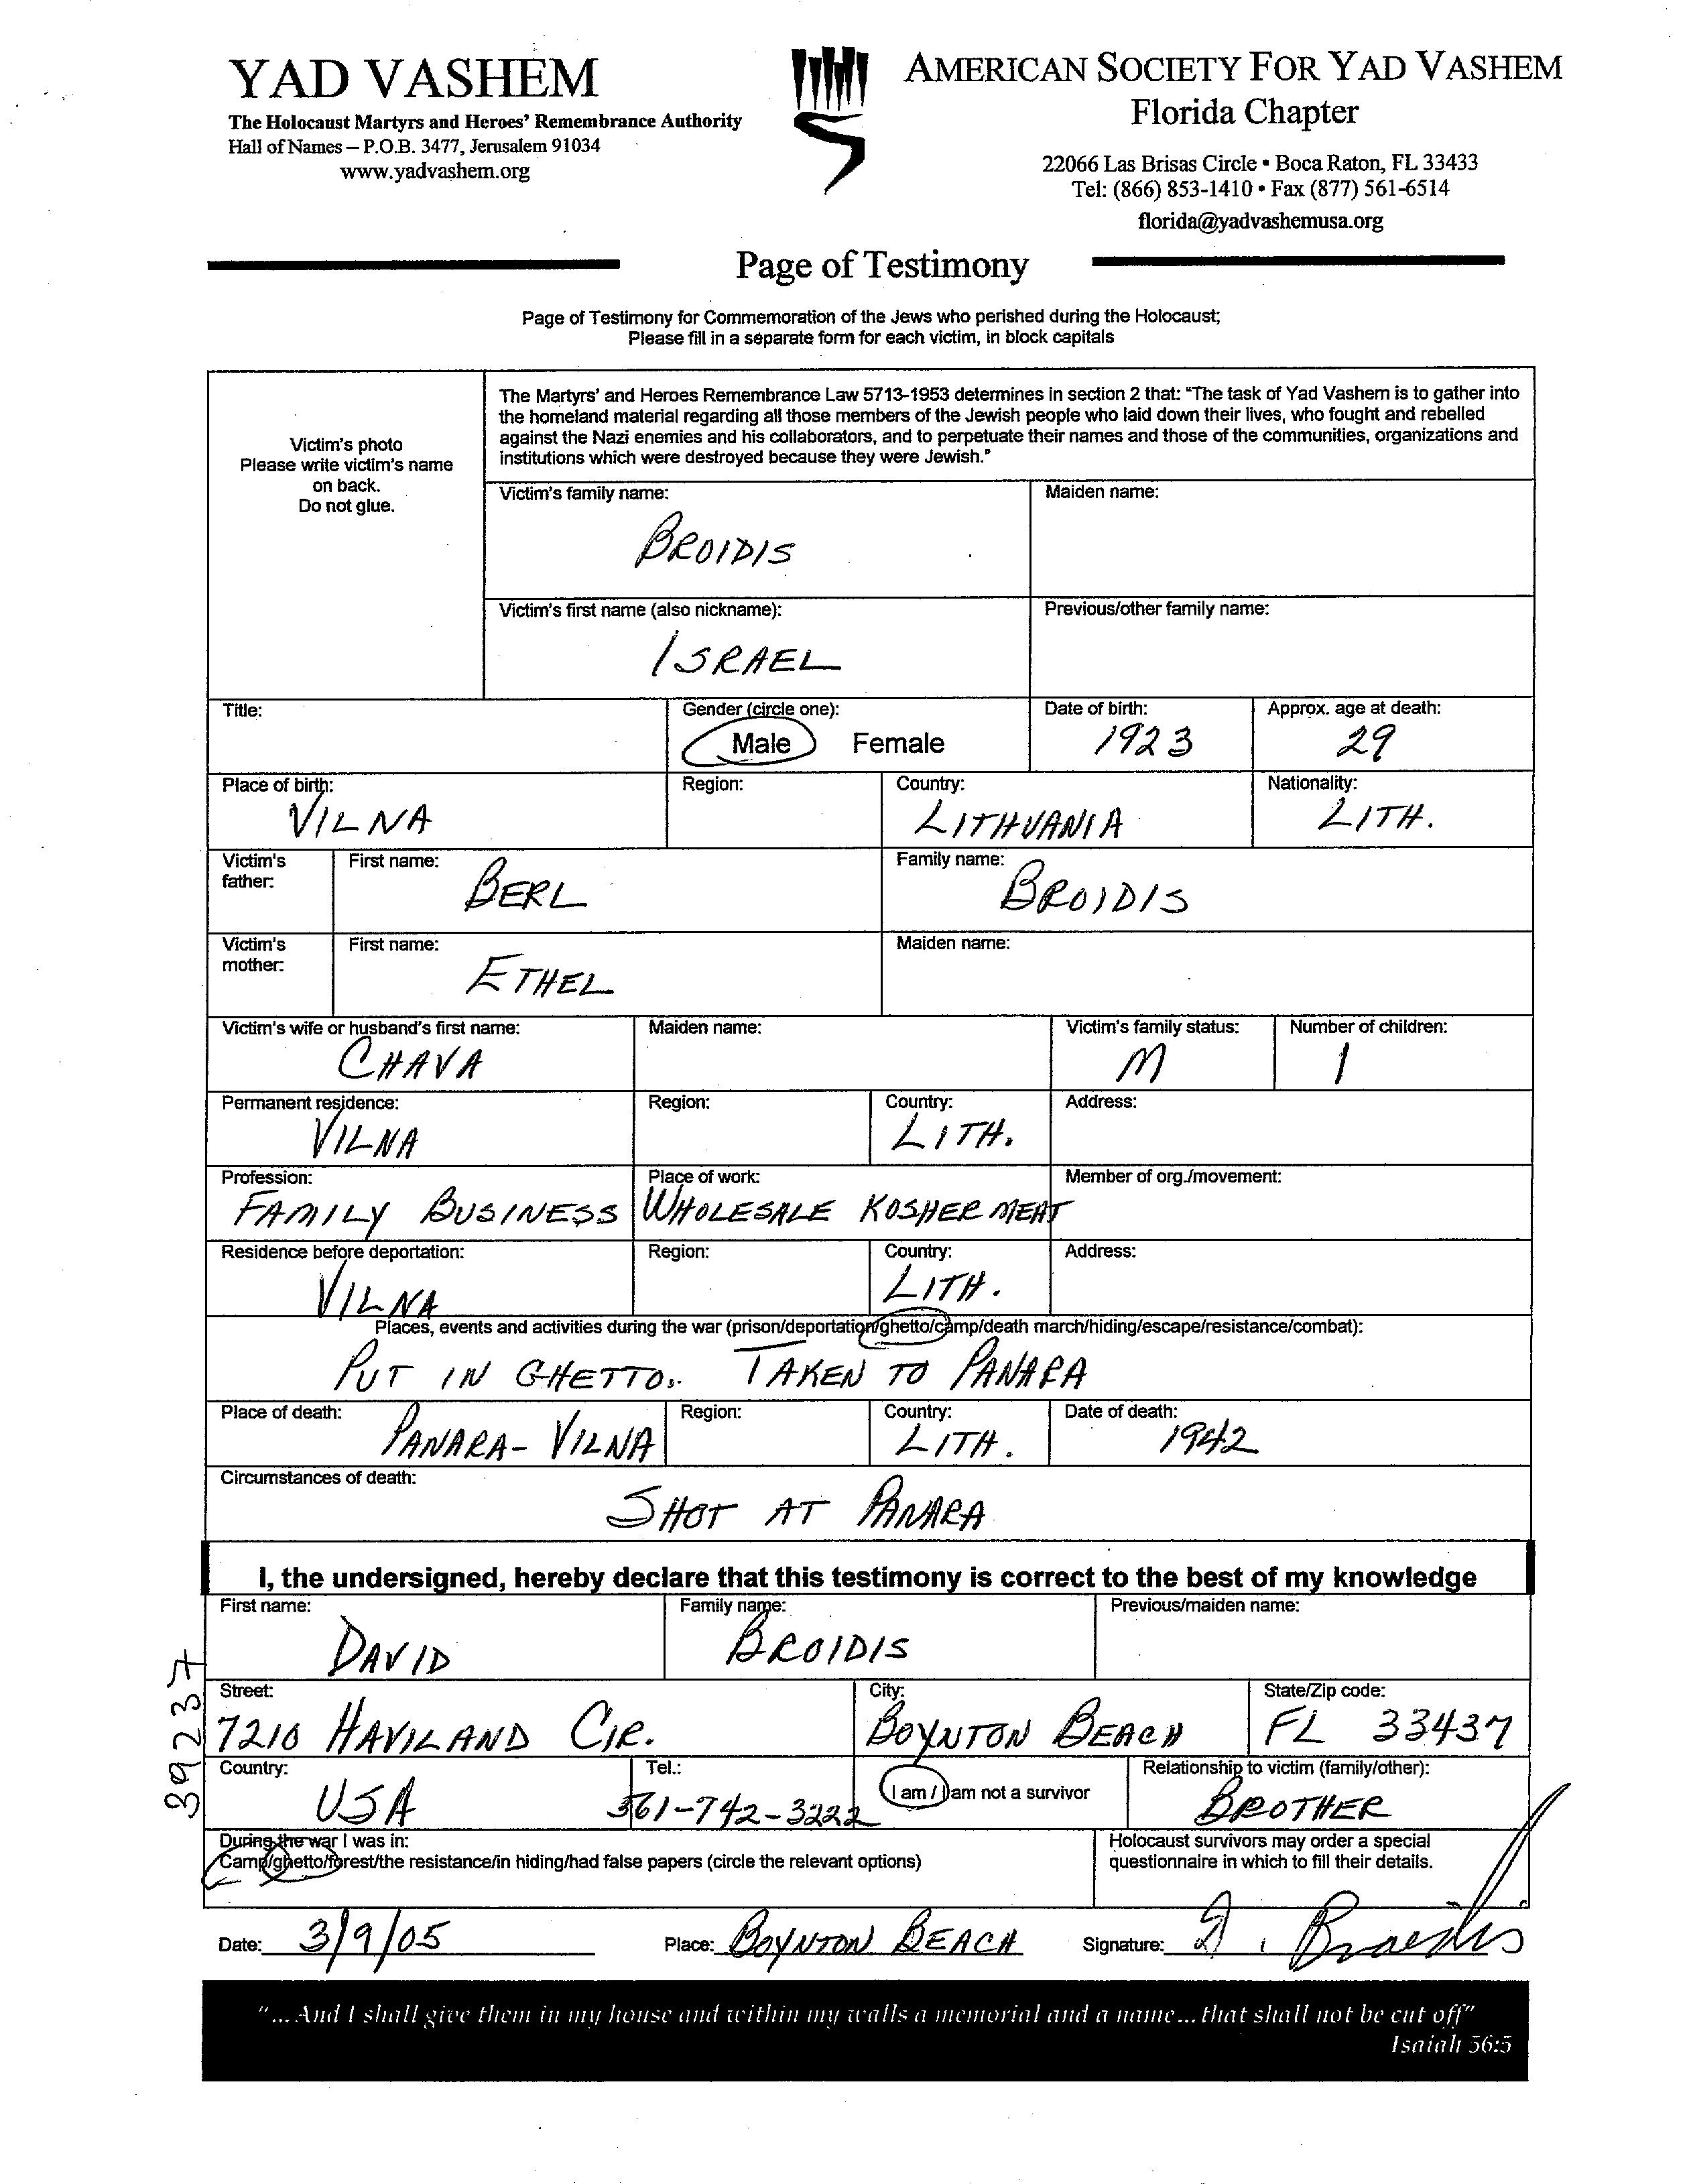 YAD VASHEM
The Holocaust Martyrs and Heroes' Remembrance Authority
Hall of Names – P.O.B. 3477, Jerusalem 91034
www.yadvashem.org
AMERICAN SOCIETY FOR YAD VASHEM
Florida Chapter
22066 Las Brisas Circle • Boca Raton, FL 33433
Tel: (866) 853-1410 • Fax (877) 561-6514
florida@yadvashemusa.org
Page of Testimony
Page of Testimony for Commemoration of the Jews who perished during the Holocaust;
Please fill in a separate form for each victim, in block capitals
Victim's photo
Please write victim's name
on back.
Do not glue.
The Martyrs' and Heroes Remembrance Law 5713-1953 determines in section 2 that: "The task of Yad Vashem is to gather into
the homeland material regarding all those members of the Jewish people who laid down their lives, who fought and rebelled
against the Nazi enemies and his collaborators, and to perpetuate their names and those of the communities, organizations and
institutions which were destroyed because they were Jewish."
Victim's family name: Maiden name:
BROIDIS
Victim's first name (also nickname): Previous/other family name:
ISRAEL
Title: Gender (circle one): Date of birth: Approx. age at death:
Male Female 1923 29
Place of birth: Region: Country: Nationality:
VILNA LITHUANIA LITH.
Victim's father: First name: BERL Family name: BROIDIS
Victim's mother: First name: ETHEL Maiden name:
Victim's wife or husband's first name: Maiden name: Victim's family status: Number of children:
CHAVA M 1
Permanent residence: Region: Country: Address:
VILNA LITH.
Profession: Place of work: Member of org./movement:
FAMILY BUSINESS WHOLESALE KOSHER MEAT
Residence before deportation: Region: Country: Address:
VILNA LITH.
Places, events and activities during the war (prison/deportation/ghetto/camp/death march/hiding/escape/resistance/combat):
PUT IN GHETTO. TAKEN TO PANARA
Place of death: Region: Country: Date of death:
PANARA- VILNA LITH. 1942
Circumstances of death:
SHOT AT PANARA
I, the undersigned, hereby declare that this testimony is correct to the best of my knowledge
First name: Family name: Previous/maiden name:
DAVID BROIDIS
Street: City: State/Zip code:
7210 HAVILAND CIR. BOYNTON BEACH FL 33437
Country: Tel.: I am / I am not a survivor Relationship to victim (family/other):
USA 561-742-3222 BROTHER
During the war I was in:
Camp/ghetto/forest/the resistance/in hiding/had false papers (circle the relevant options)
Holocaust survivors may order a special
questionnaire in which to fill their details.
Date: 3/9/05 Place: BOYNTON BEACH Signature: D. Broidis
"...And I shall give them in my house and within my walls a memorial and a name... that shall not be cut off"
Isaiah 56:5
39237